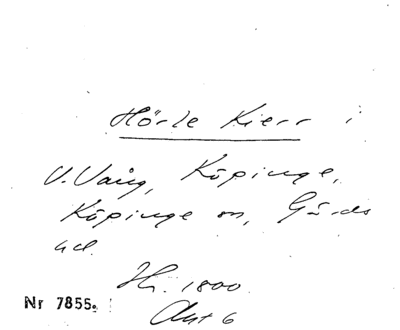 Hörle Kierr i
V. Vång, Köpinge,
Köpinge sn, Gärds
hd.
Hs. 1800
Akt 6
Nr 7855.